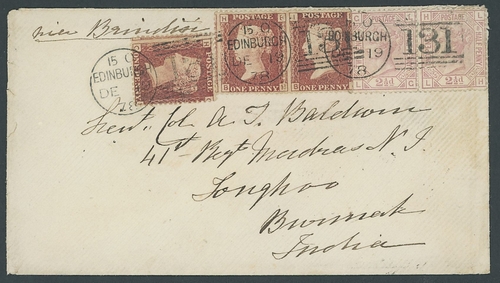 via Brindisi
15 O
EDINBURGH
DE
78
POSTAGE
ONE PENNY
15 O
EDINBURGH
DE 19
78
POSTAGE
ONE PENNY
EDINBURGH
19
78
POSTAGE
2½d
131
2½d
Lieut. Col. A. T. Baldwin
41st Regt Madras N. I.
Tonghoo
Burmah
India